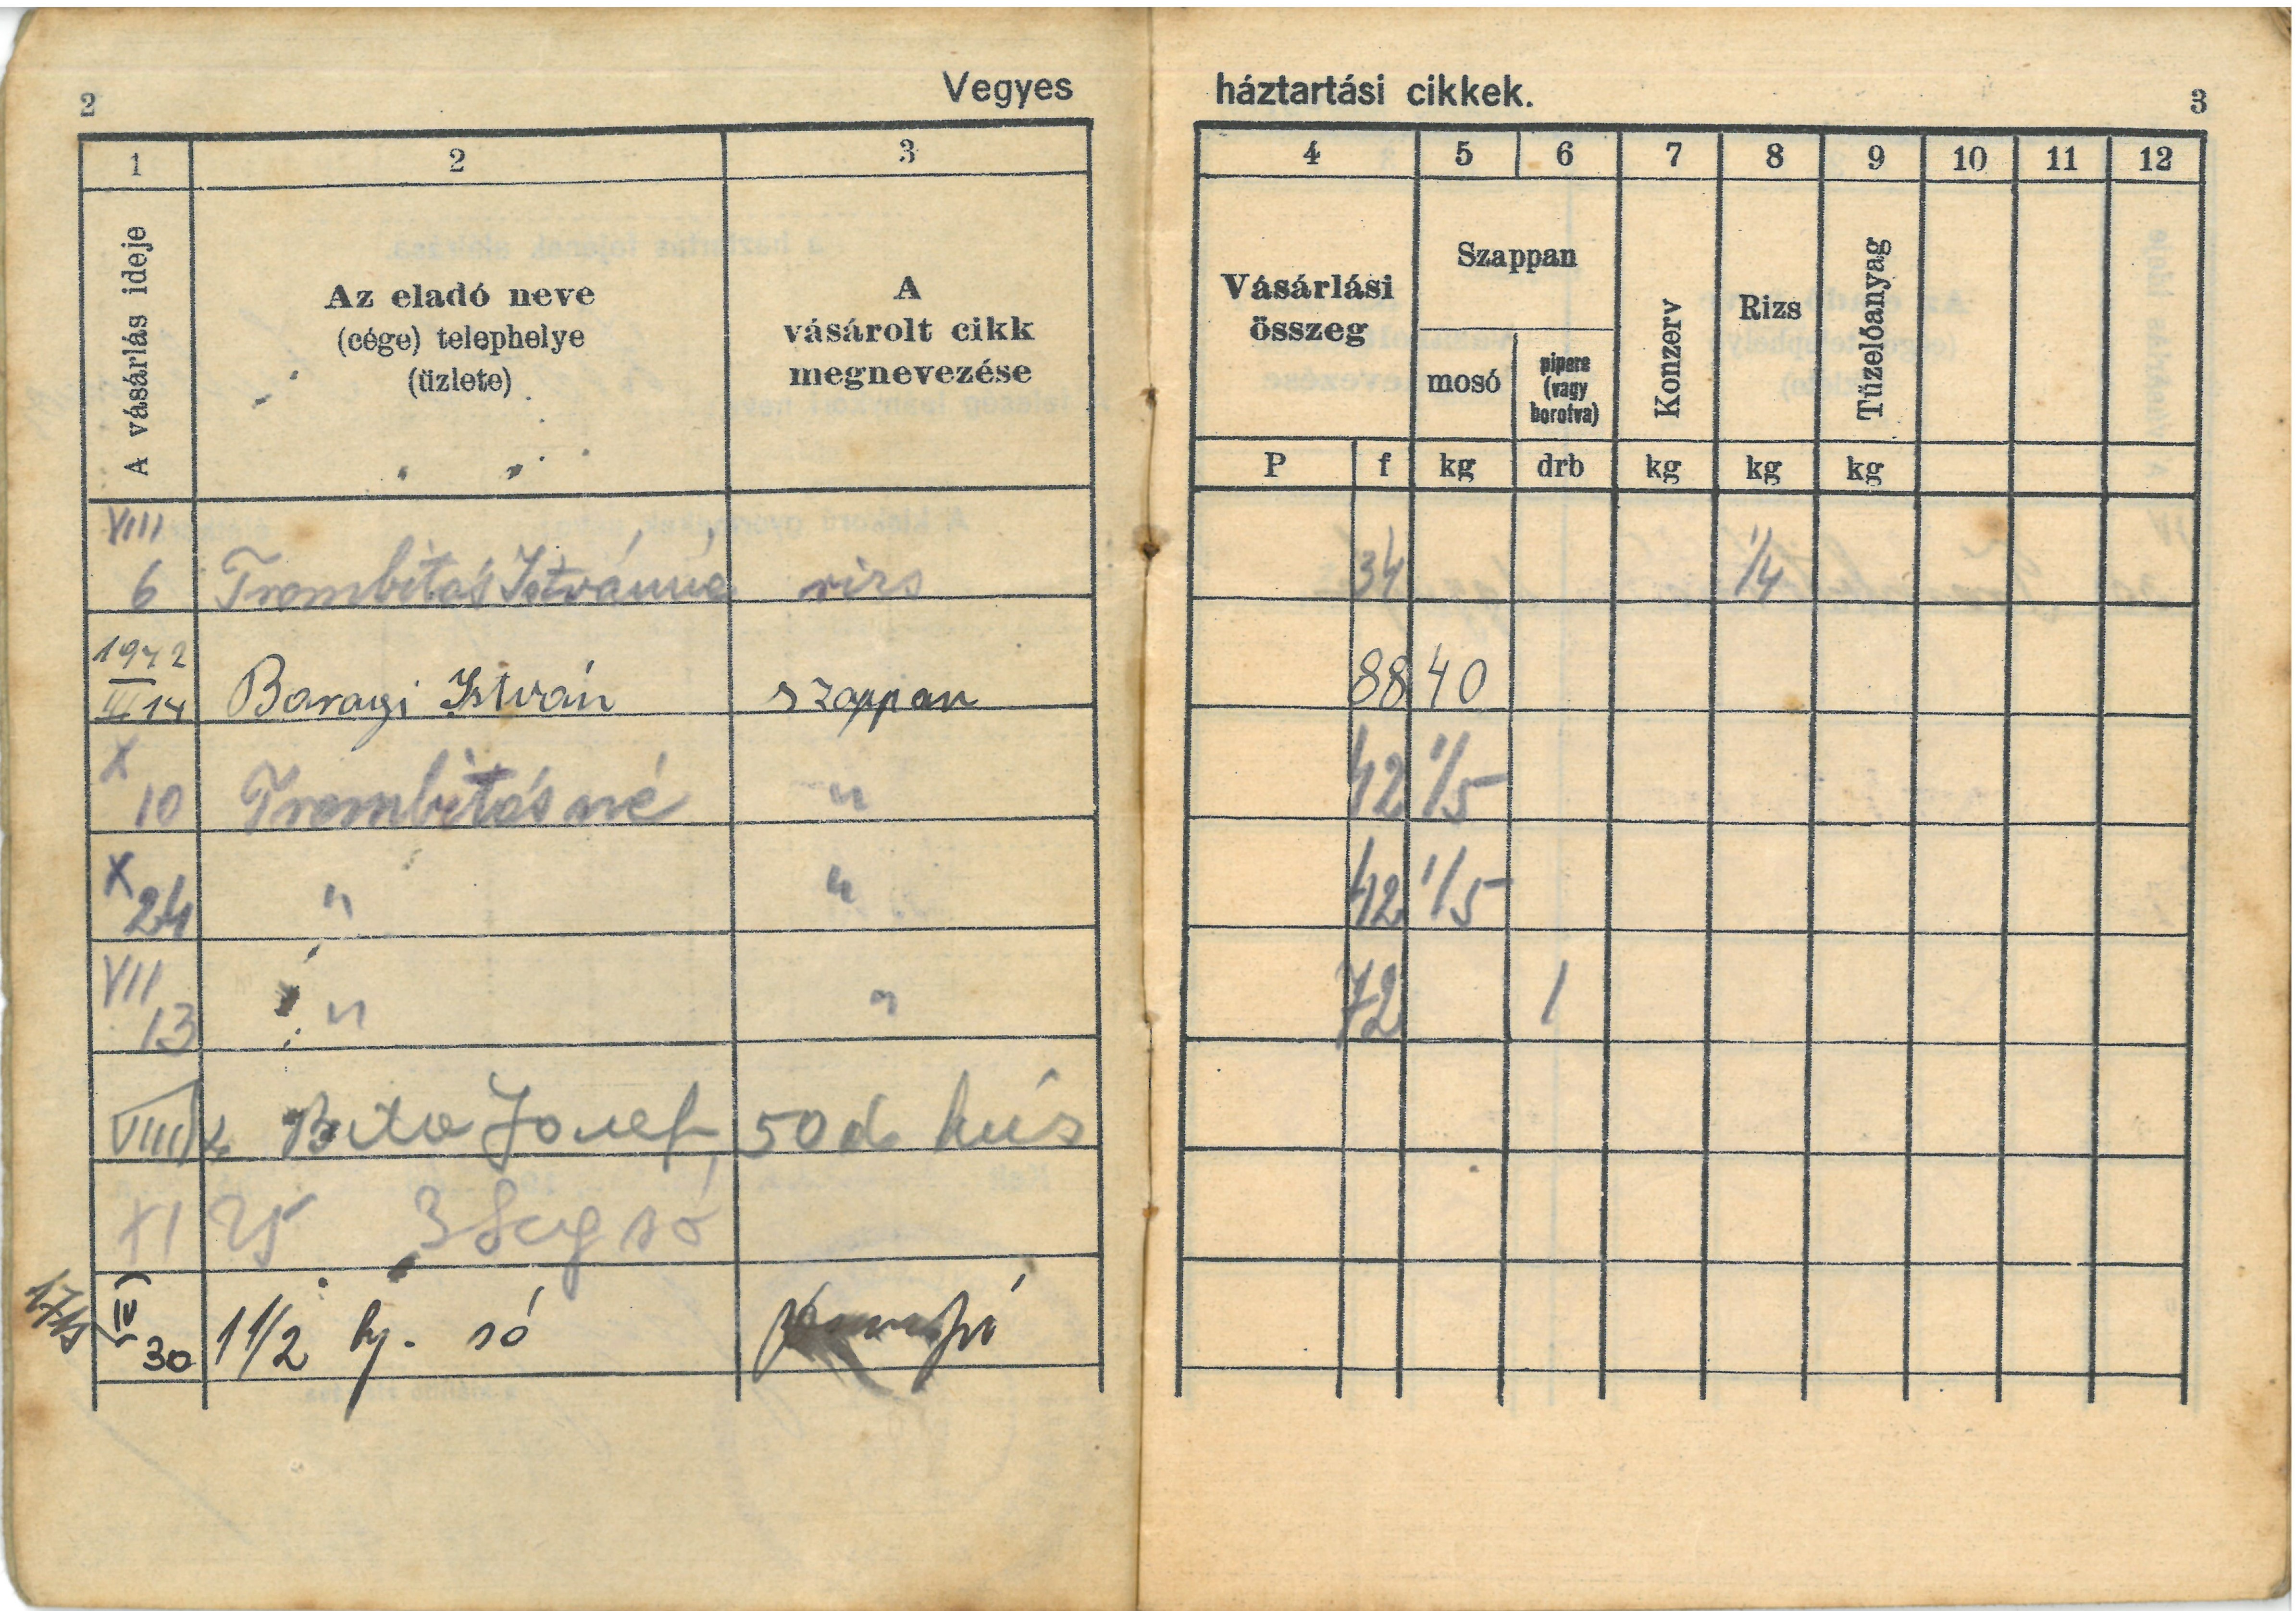 2
Vegyes háztartási cikkek.
3
1 2 3 4 5 6 7 8 9 10 11 12
A vásárlás ideje
Az eladó neve
(cége) telephelye
(üzlete)
A
vásárolt cikk
megnevezése
Vásárlási
összeg
Szappan
mosó
pipere
(vagy
borotva)
Konzerv
Rizs
Tüzelőanyag
P f kg drb kg kg kg
VIII
6 Trombitás Istvánné rizs 34 1/4
1942
III 14 Baragi István szappan 88 40
X
10 Trombitásné " 42 1/5
X
24 " " 42 1/5
VII
13 " " 72 1
VIII József 50 d hús
XI 25 3 só
IV
30 1 1/2 só